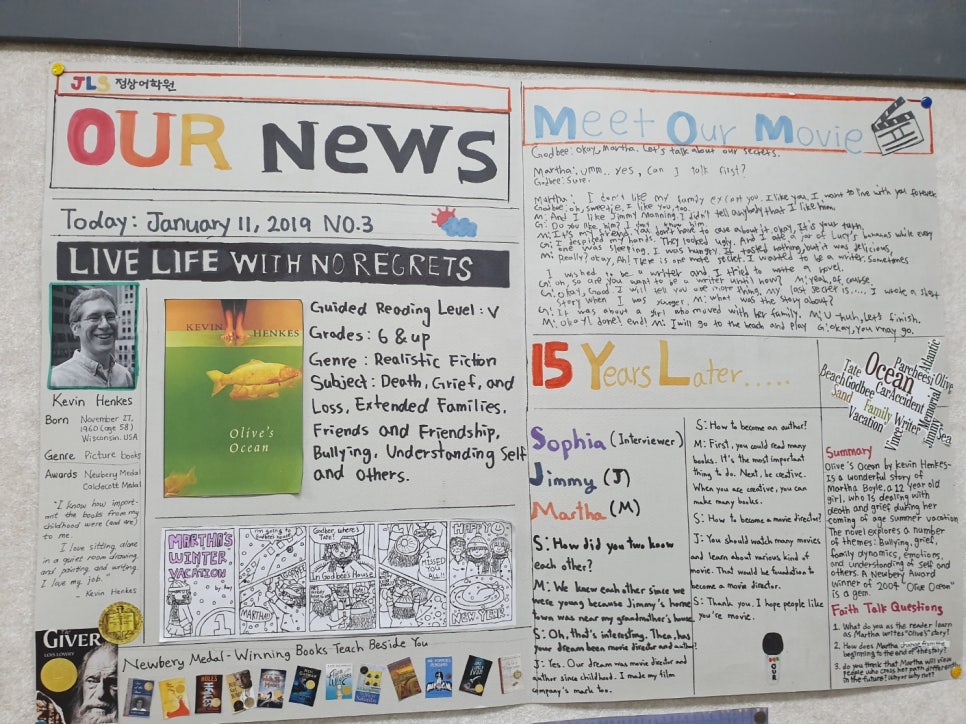 JLS 정상어학원
OUR NEWS
Today: January 11, 2019 NO.3
LIVE LIFE WITH NO REGRETS
Kevin Henkes
Born November 27,
1960 (age 58)
Wisconsin. USA
Genre Picture books
Awards Newbery Medal
Caldecott Medal
"I know how impor-
ant the books from my
childhood were (and are)
to me.
I love sitting alone
in a quiet room drawing
and painting and writing.
I love my job."
- Kevin Henkes
KEVIN HENKES
Olive's
Ocean
Guided Reading Level: V
Grades: 6 & up
Genre: Realistic Fiction
Subject: Death, Grief, and
Loss, Extended Families,
Friends and Friendship,
Bullying, Understanding Self
and Others.
MARTHA'S
WINTER
VACATION
I'm going to
Godbee's house
MARTHA!
Godbee, where's
Tate?
In Godbee's House
I MISSED
YOU
ALL!!
HAPPY
NEW YEAR
THE
GIVER
LOIS LOWRY
Newbery Medal-Winning Books Teach Beside You
HOLES
Meet Our Movie
Godbee: Okay, Martha. Let's talk about our secrets.
Martha: umm.. yes, can I talk first?
Godbee: Sure.
Martha: I don't like my family except you. I like you. I want to live with you forever
Godbee: oh, sweetie. I like you, too.
M: And I like Jimmy Manning. I didn't tell anybody that I like him.
G: Do you like him? I don't know him.
M: It's my friend, you don't have to care about it. okay, It's your turn.
G: I despised my hands. They looked ugly. And I ate a jar of Lucy's bananas while every
one was sleeping. I was hungry. It tasted nothing, but it was delicious.
M: Really? okay, Ah! There is one more secret. I wanted to be a writer. Sometimes
I wished to be a writer and I tried to write a novel.
G: oh, so are you want to be a writer until now? M: yeah, of course.
G: Okay, Good. I will tell you one more thing, my last secret is..... I wrote a short
story when I was younger. M: what was the story about?
G: It was about a girl who moved with her family. M: U-huh, Let's finish.
M: Okay! done! end! M: I will go to the beach and play G: okay, you may go.
15 Years Later.....
Sophia (Interviewer)
Jimmy (J)
Martha (M)
S: How did you two know
each other?
M: We knew each other since we
were young because Jimmy's home
town was near my grandmother's house.
S: Oh, that's interesting. Then, has
your dream been movie director and author?
J: Yes. Our dream was movie director and
author since childhood. I made my film
company's mark too.
S: How to become an author?
M: First, you could read many
books. It's the most important
thing to do. Next, be creative.
When you are creative, you can
make many books.
S: How to become a movie director?
J: You should watch many movies
and learn about various kind of
movie. That would be foundation to
become a movie director.
S: Thank you. I hope people like
you're movie.
Atlantic
Parcheesi
Olive
Ocean
Tate
Beach
Godbee
Car
Accident
Sand
Family
Writer
Memorial
Vacation
Vince
Jimmy
Sea
Summary
Olive's Ocean by Kevin Henkes-
Is a wonderful story of
Martha Boyle, a 12 year old
girl, who is dealing with
death and grief during her
coming of age summer vacation
The novel explores a number
of themes: Bullying, grief,
family dynamics, emotions,
and understanding of self and
others. A Newbery Award
winner of 2004 "Olive Ocean"
is a gem.
Faith Talk Questions
1. What do you as the reader learn
as Martha writes "Olive's" story?
2. How does Martha
beginning to the end of the story?
3. do you think that Martha will
people who cross her path differently
in the future? Why or Why not?